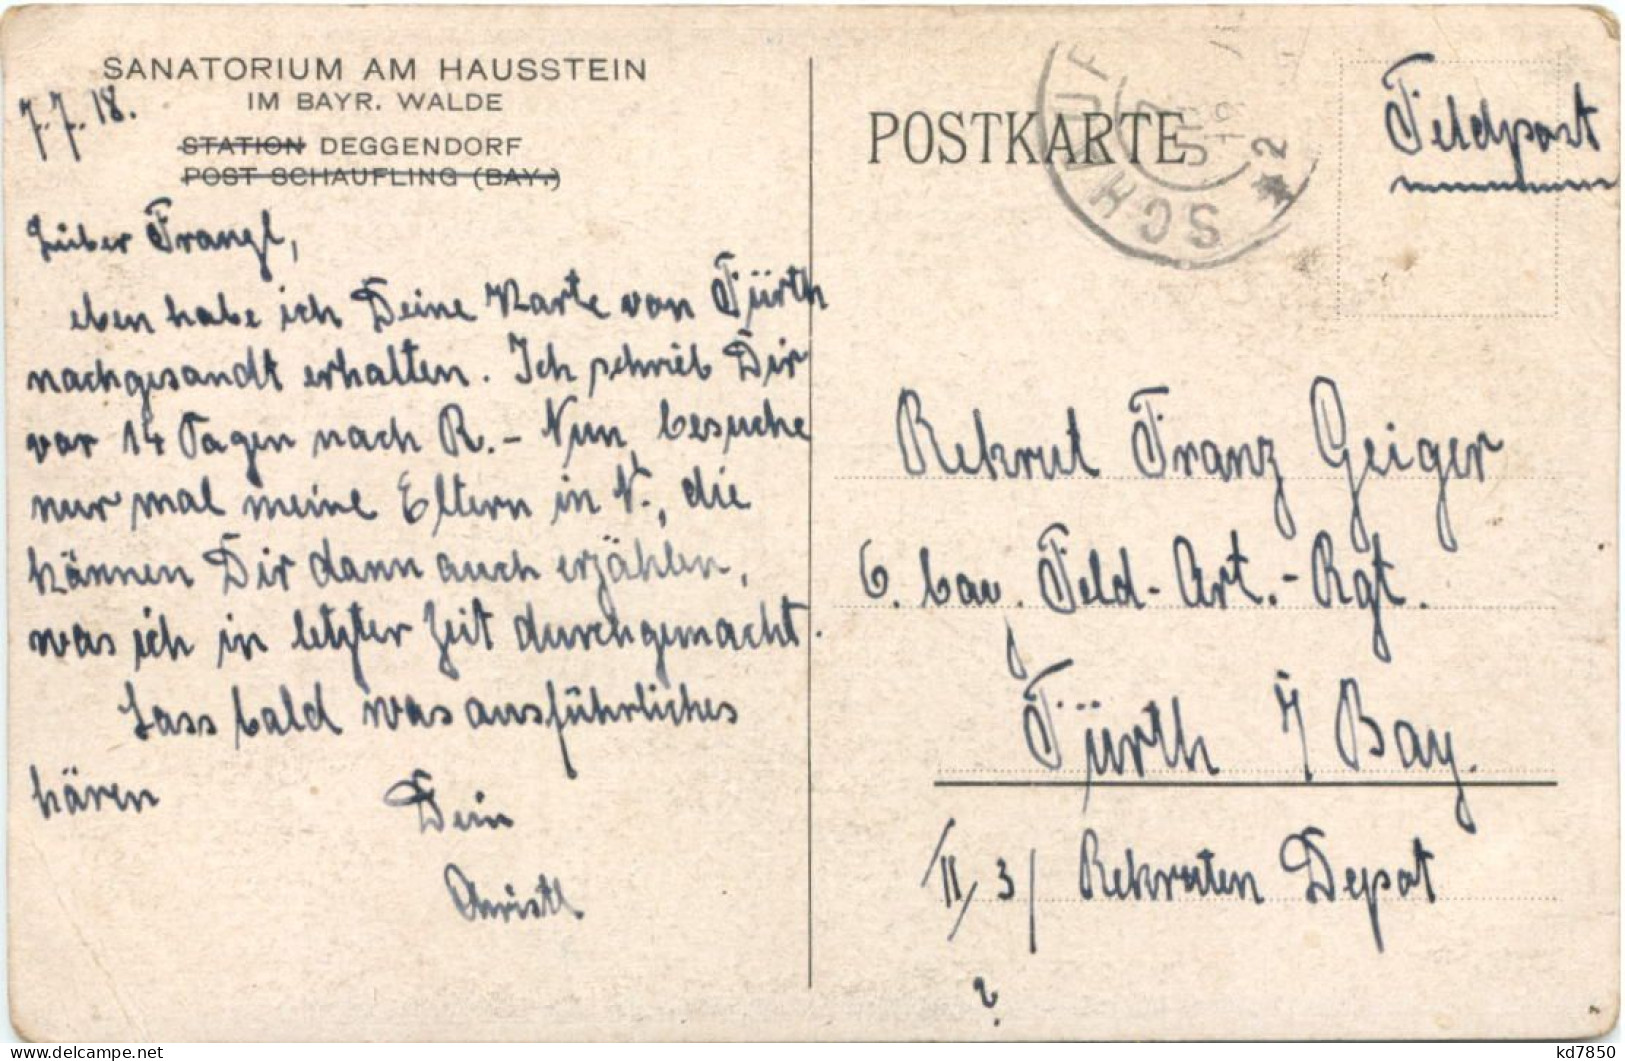 SANATORIUM AM HAUSSTEIN
IM BAYR. WALDE
7.7.18.
STATION DEGGENDORF
POST SCHAUFLING (BAY.)
Lieber Franzl,
eben habe ich Deine Karte von Fürth
nachgesandt erhalten. Ich schrieb Dir
vor 14 Tagen nach R. - Nun besuche
nur mal meine Eltern in N., die
können Dir dann auch erzählen,
was ich in letzter Zeit durchgemacht.
Lass bald was ausführliches
hören
Dein
Christl
POSTKARTE
SCHAUF
2
Feldpost
Rekrut Franz Geiger
6. bay. Feld-Art.-Rgt.
Fürth i/Bay.
/II/3/ Rekruten Depot
?
kd7850